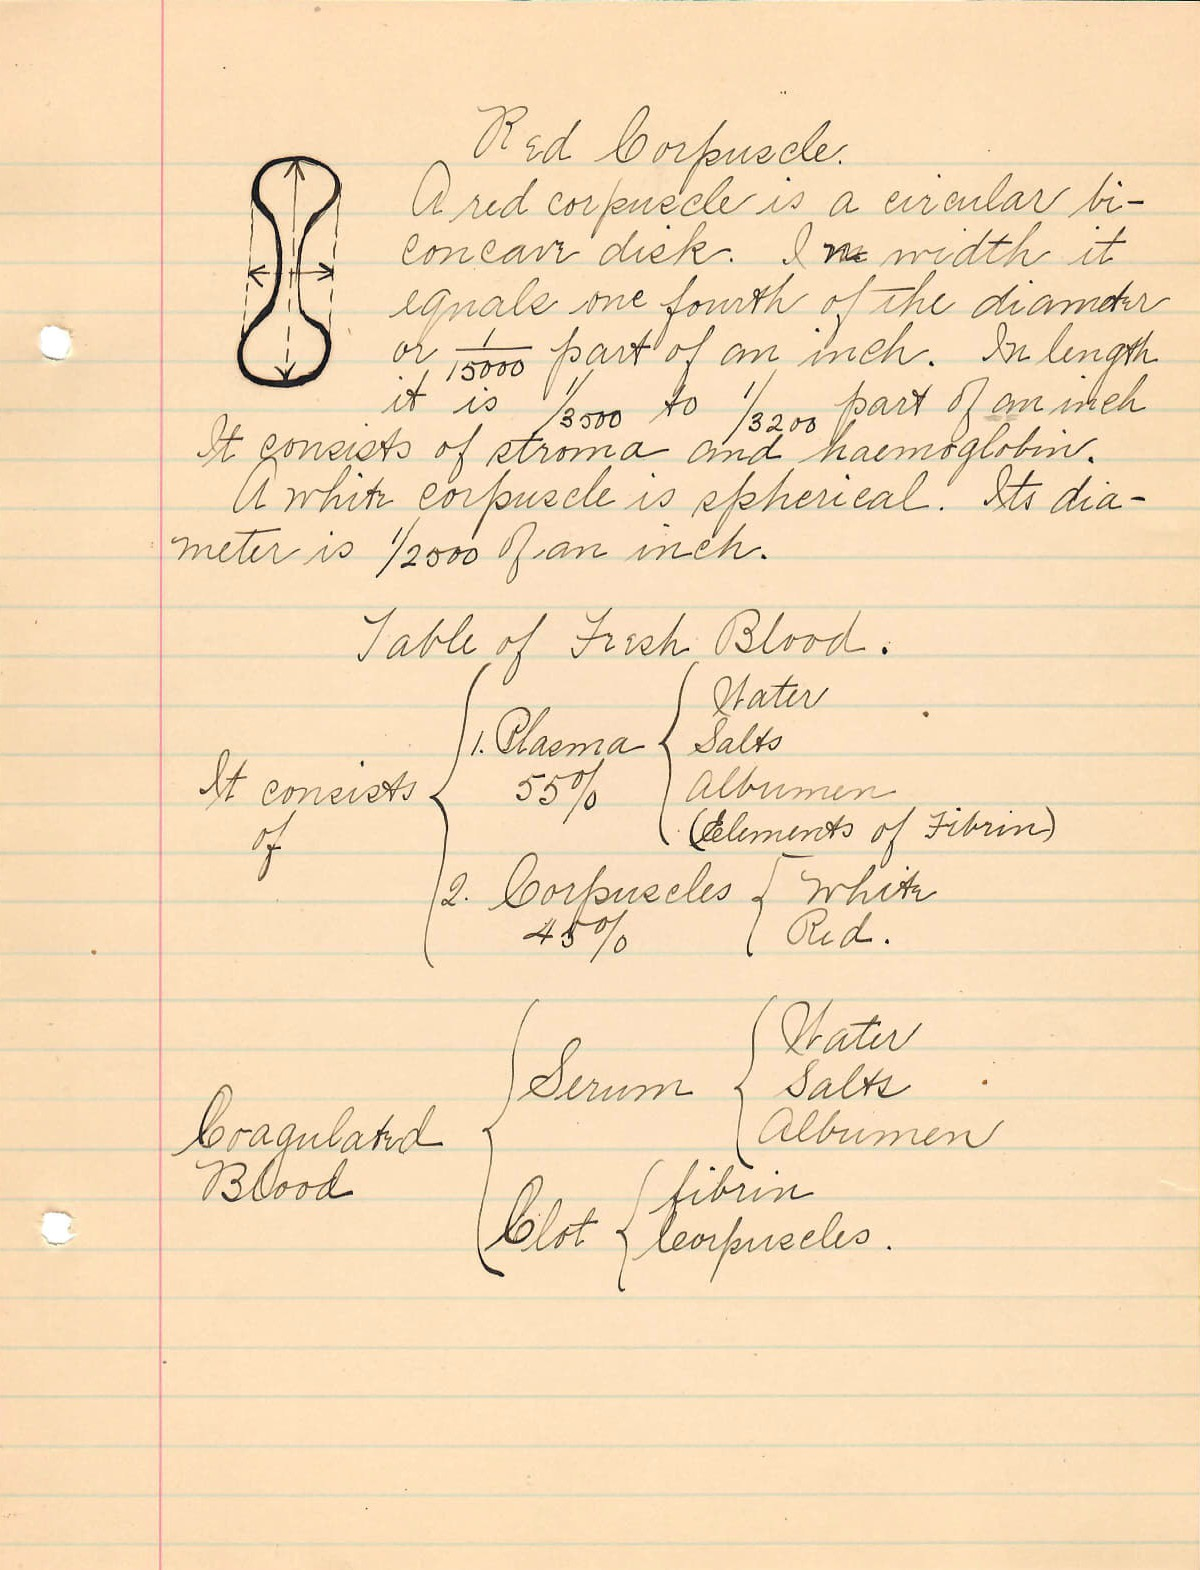 Red Corpuscle.
A red corpuscle is a circular bi-
concave disk. In width it
equals one fourth of the diameter
or 1/15000 part of an inch. In length
it is 1/3500 to 1/3200 part of an inch
It consists of stroma and haemoglobin.
A white corpuscle is spherical. Its dia-
meter is 1/2500 of an inch.
Table of Fresh Blood.
It consists
of
1. Plasma
55%
Water
Salts
Albumen
(Elements of Fibrin)
2. Corpuscles
45%
White
Red.
Coagulated
Blood
Serum
Water
Salts
Albumen
Clot
fibrin
Corpuscles.